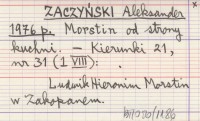 ZACZYŃSKI Aleksander
1976 p. Morstin od strony
kuchni. – Kierunki 21,
nr 31 (1 VIII):
Ludwik Hieronim Morstin
w Zakopanem.